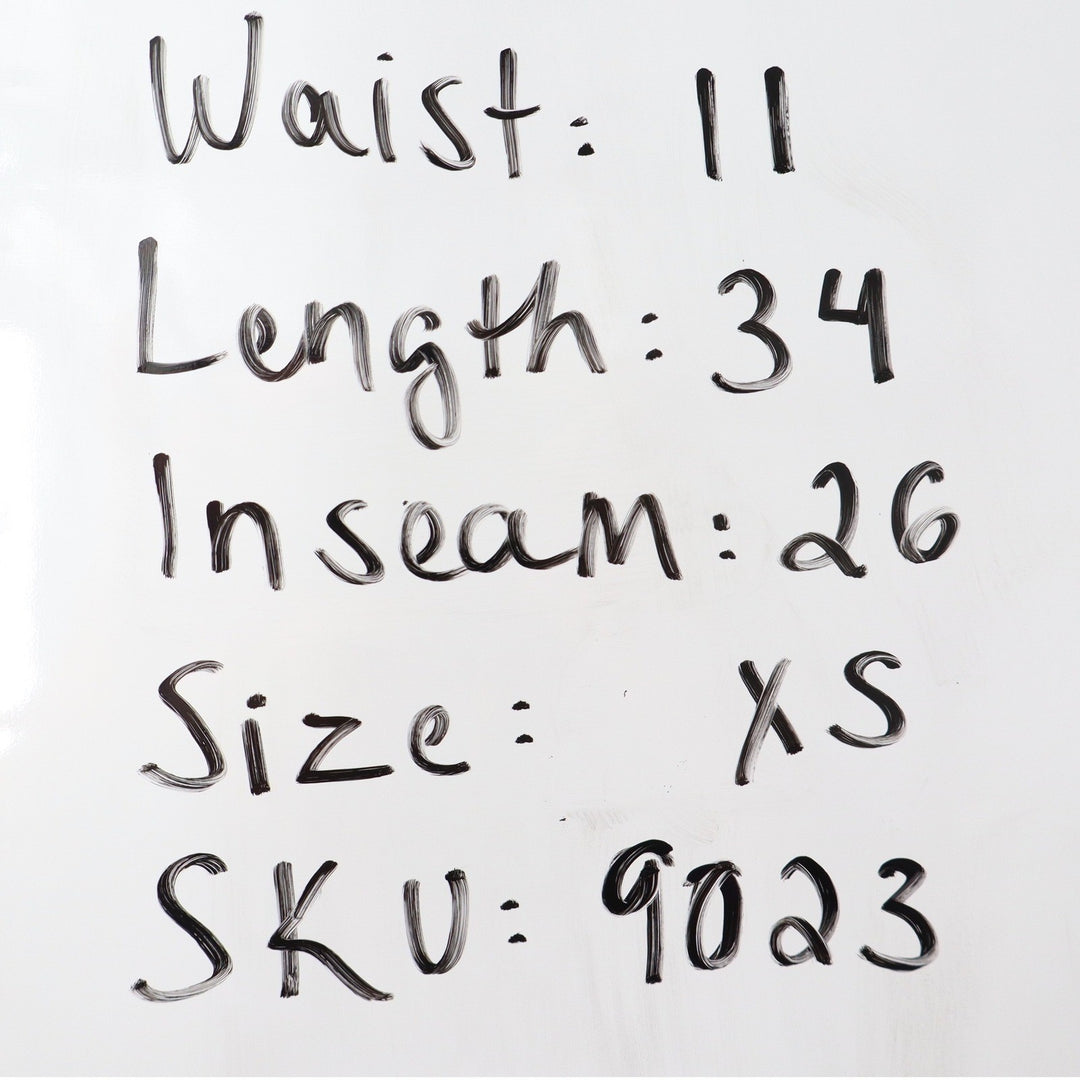 Waist: 11
Length: 34
Inseam: 26
Size: XS
SKU: 9023